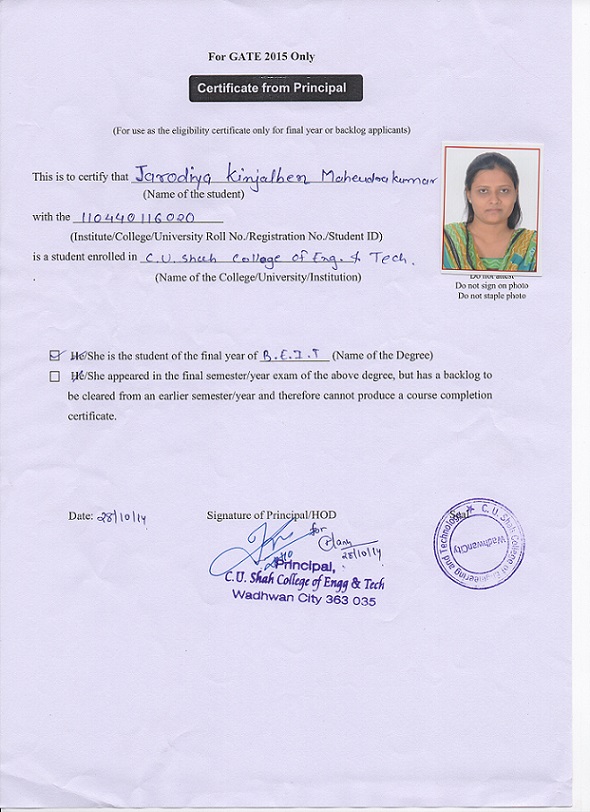 For GATE 2015 Only
Certificate from Principal
(For use as the eligibility certificate only for final year or backlog applicants)
This is to certify that Jarodiya Kinjalben Mahendrakumar
(Name of the student)
with the 110440116020
(Institute/College/University Roll No./Registration No./Student ID)
is a student enrolled in C.U. Shah College of Eng. & Tech.
(Name of the College/University/Institution)
Do not attest
Do not sign on photo
Do not staple photo
He/She is the student of the final year of B.E.I.T (Name of the Degree)
He/She appeared in the final semester/year exam of the above degree, but has a backlog to
be cleared from an earlier semester/year and therefore cannot produce a course completion
certificate.
Date: 28/10/14
Signature of Principal/HOD
for
28/10/14
Principal,
C.U. Shah College of Engg & Tech
Wadhwan City 363 035
C. U. Shah College of Engineering and Technology
WadhwanCity